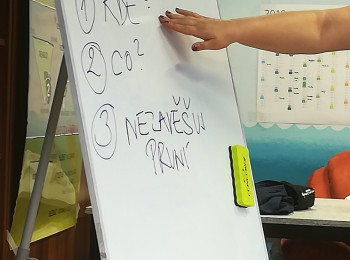 ① KDE?
② CO?
③ NEZAVĚŠUJ
PRVNÍ
2019